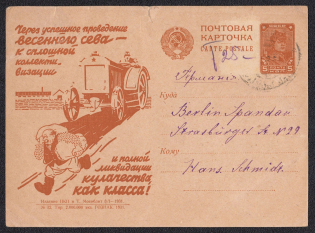 Через успешное проведение
весеннего сева –
к сплошной
коллекти-
визации
и полной
ликвидации
кулачества,
как класса!
ПОЧТОВАЯ
КАРТОЧКА
CARTE POSTALE
Германия
Куда
Berlin Spandau
Strasburger
Кому
Hans Schmidt.